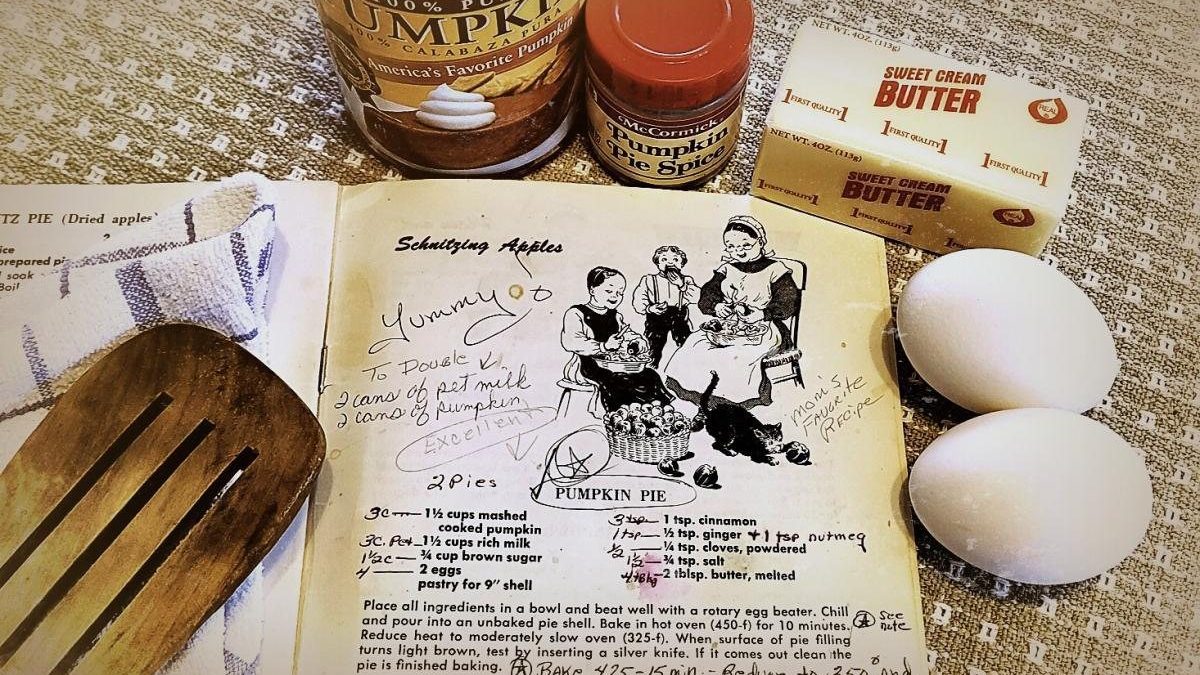 100% PU
PUMPKI
100% CALABAZA PURA
America's Favorite Pumpkin
McCormick
Pumpkin
Pie Spice
NET WT. 4OZ. (113g)
SWEET CREAM
BUTTER
REAL
1 FIRST QUALITY 1
1 FIRST QUALITY 1
1 FIRST QUALITY 1
NET WT. 4OZ. (113g)
SWEET CREAM
BUTTER
1 FIRST QUALITY 1
1 FIRST QUALITY 1
TZ PIE (Dried apples)
2
ice
prepared pi
l soak
Boil
Schnitzing Apples
Yummy
To Double
2 cans of pet milk
2 cans of pumpkin
Excellent
Mom's
FAVORITE
Recipe
2 Pies
PUMPKIN PIE
3c 1½ cups mashed
cooked pumpkin
3c. Pet 1½ cups rich milk
1½c ¾ cup brown sugar
4 2 eggs
pastry for 9" shell
3 tsp 1 tsp. cinnamon
1 tsp ½ tsp. ginger + 1 tsp nutmeg
½ ¼ tsp. cloves, powdered
1½ ¾ tsp. salt
4 tblsp 2 tblsp. butter, melted
Place all ingredients in a bowl and beat well with a rotary egg beater. Chill
and pour into an unbaked pie shell. Bake in hot oven (450-f) for 10 minutes.
See
note
Reduce heat to moderately slow oven (325-f). When surface of pie filling
turns light brown, test by inserting a silver knife. If it comes out clean the
pie is finished baking. BAKE 425-15 min. - Reduce to 350° and